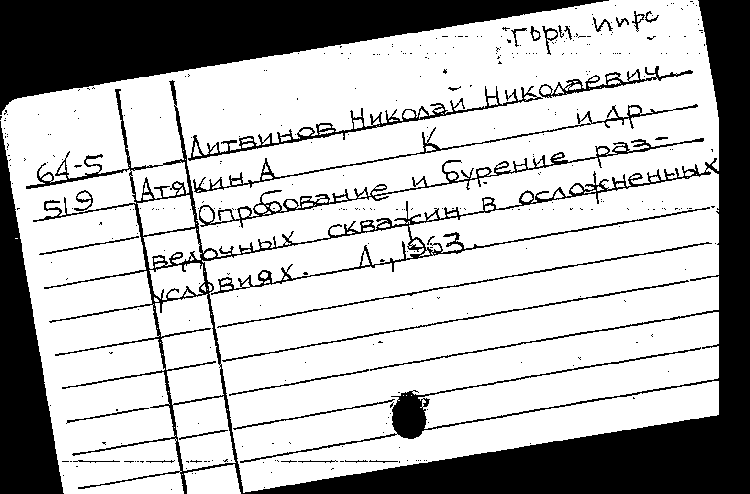 Литвинов, Николай Николаевич.
64-5
Атякин, А К и др.
519
Опробование и бурение раз-
ведочных скважин в осложненных
условиях. Л., 1963.